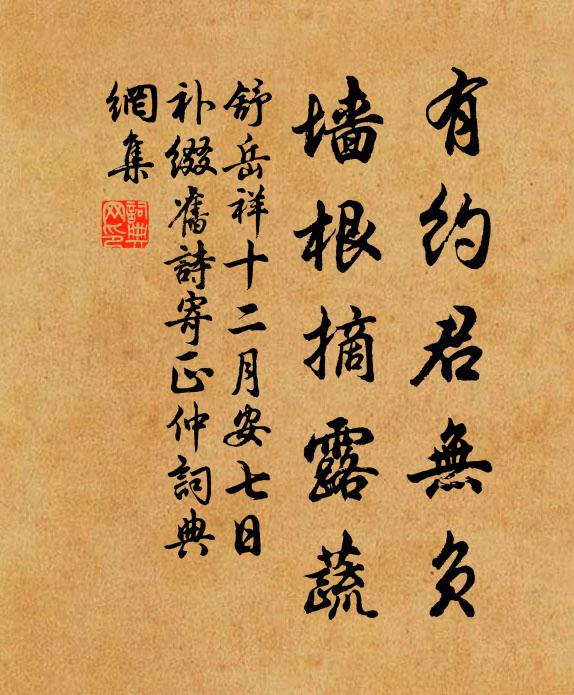 有约君無负
墙根摘露蔬
舒岳祥十二月安七日
补綴舊詩寄正仲詞典
網集
詞典
网印